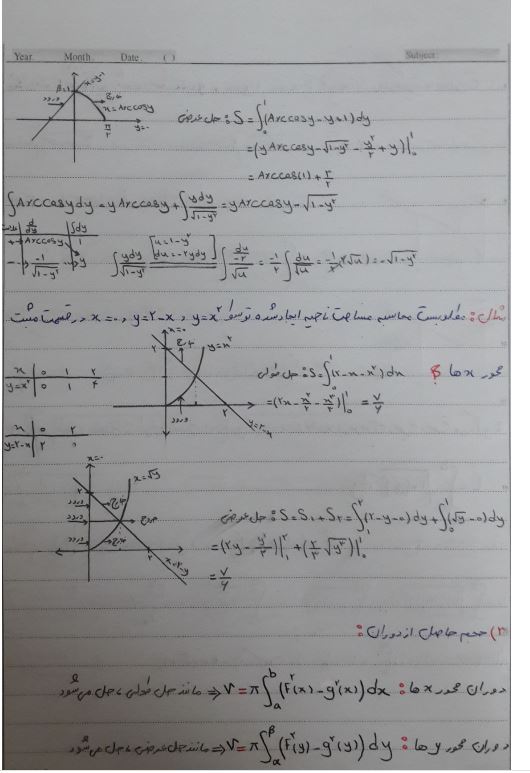 Year. Month. Date. ( ) Subject:
x=y-1
خروج
ورود
x=Arccosy
y=0
π/۲
حل عرضی: S=∫₀¹(Arccosy-y+1)dy
=(yArccosy-√(1-y²)-y²/۲+y)|₀¹
=Arccos(1)+۳/۲
∫Arccosydy=yArccosy+∫ydy/√(1-y²)=yArccosy-√(1-y²)
d/dy ∫dy
+ Arccosy 1
- -1/√(1-y²) y
∫ydy/√(1-y²) [u=1-y² du=-۲ydy] ∫(du/-۲)/√u=-1/۲∫du/√u=-1/۲(۲√u)=-√(1-y²)
مثال: مطلوبست محاسبه مساحت ناحیه ایجاد شده توسط y=x² و y=۲-x و x=0 در قسمت مثبت
محور x ها
x=0
خروج
y=x²
ورود
y=۲-x
x 0 1 ۲
y=x² 0 1 ۴
x 0 ۲
y=۲-x ۲ 0
حل طولی: S=∫₀¹(۲-x-x²)dx
=(۲x-x²/۲-x³/۳)|₀¹=۷/۶
x=0
x=√y
خروج
ورود
ورود
خروج
ورود
x=۲-y
حل عرضی: S=S₁+S₂=∫₁²(۲-y-0)dy+∫₀¹(√y-0)dy
=(۲y-y²/۲)|₁²+(۲/۳√y³)|₀¹
=۷/۶
۲) حجم حاصل از دوران:
دوران محور x ها: V=π∫ₐᵇ(f²(x)-g²(x))dx ⇒ مانند حل طولی حل می شود
دوران محور y ها: V=π∫_α^β(f²(y)-g²(y))dy ⇒ مانند حل عرضی حل می شود